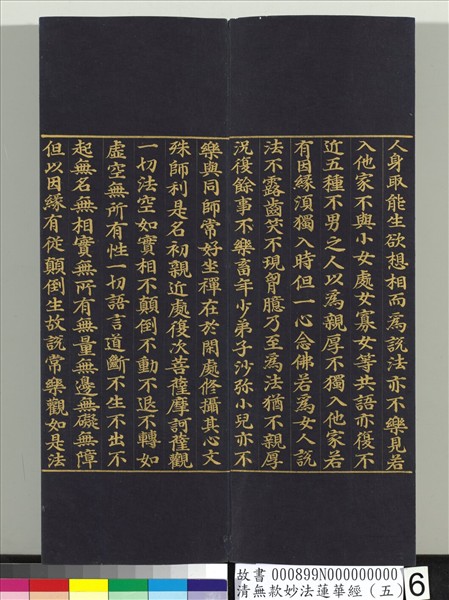 人身取能生欲想相而為說法亦不樂見若
入他家不與小女處女寡女等共語亦復不
近五種不男之人以為親厚不獨入他家若
有因緣湏獨入時但一心念佛若為女人說
法不露齒笑不現胷臆乃至為法猶不親厚
況復餘事不樂畜年少弟子沙弥小兒亦不
樂與同師常好坐禪在於閑處修攝其心文
殊師利是名初親近處復次菩薩摩訶薩觀
一切法空如實相不顛倒不動不退不轉如
虛空無所有性一切語言道斷不生不出不
起無名無相實無所有無量無邊無礙無障
但以因緣有從顛倒生故說常樂觀如是法
故書 000899N000000000
清無款妙法蓮華經（五）
6